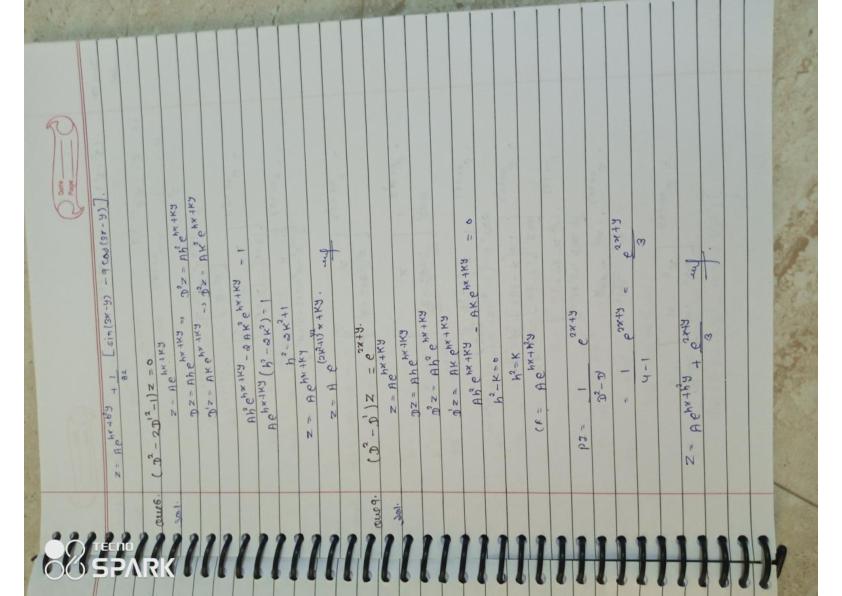 Date
Page
z = Ae^{hx+h²y} + 1/82 [sin(3x-y) - 9 cos(3x-y)].
Ques. (D² - 2D'² - 1) z = 0
Sol. z = Ae^{hx+ky}
Dz = Ahe^{hx+ky} ⇒ D²z = Ah²e^{hx+ky}
D'z = AKe^{hx+ky} → D'²z = AK²e^{hx+ky}
Ah²e^{hx+ky} - 2AK²e^{hx+ky} = 1
Ae^{hx+ky} (h² - 2K²) = 1
h² = 2K²+1
z = Ae^{hx+ky}
z = A e^{(2K²+1)^{1/2} x + Ky}.
Ques 9. (D² - D') z = e^{2x+y}.
Sol. z = Ae^{hx+ky}
Dz = Ahe^{hx+ky}
D²z = Ah²e^{hx+ky}
D'z = AKe^{hx+ky}
Ah²e^{hx+ky} - AKe^{hx+ky} = 0
h² - K = 0
h² = K
CF = Ae^{hx+h²y}
PI = 1/(D² - D') e^{2x+y}
= 1/(4-1) e^{2x+y} = e^{2x+y}/3
z = Ae^{hx+h²y} + e^{2x+y}/3.
TECNO
SPARK